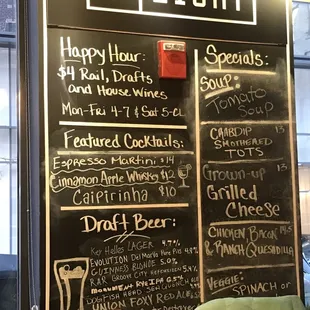 Happy Hour:
$4 Rail, Drafts
and House Wines
Mon-Fri 4-7 & Sat 5-CL
Featured Cocktails:
Espresso Martini $14
Cinnamon Apple Whisky $12
Caipirinha $10
Draft Beer:
Key Helles LAGER 4.7%
EVOLUTION Del Marva Pure Pils 4.8%
GUINNESS BLONDE 5.0%
RAR GROOV CITY HEFEWEIZEN 5.4%
MONUMENT RYE IPA
DOGFISH HEAD
UNION FOXY RED ALE
Specials:
Soup:
Tomato Soup
CRABDIP 13
SMOTHERED
TOTS
Grown-up 13
Grilled
Cheese
CHICKEN BACON 14.5
& RANCH QUESADILLA
VEGGIE:
SPINACH or